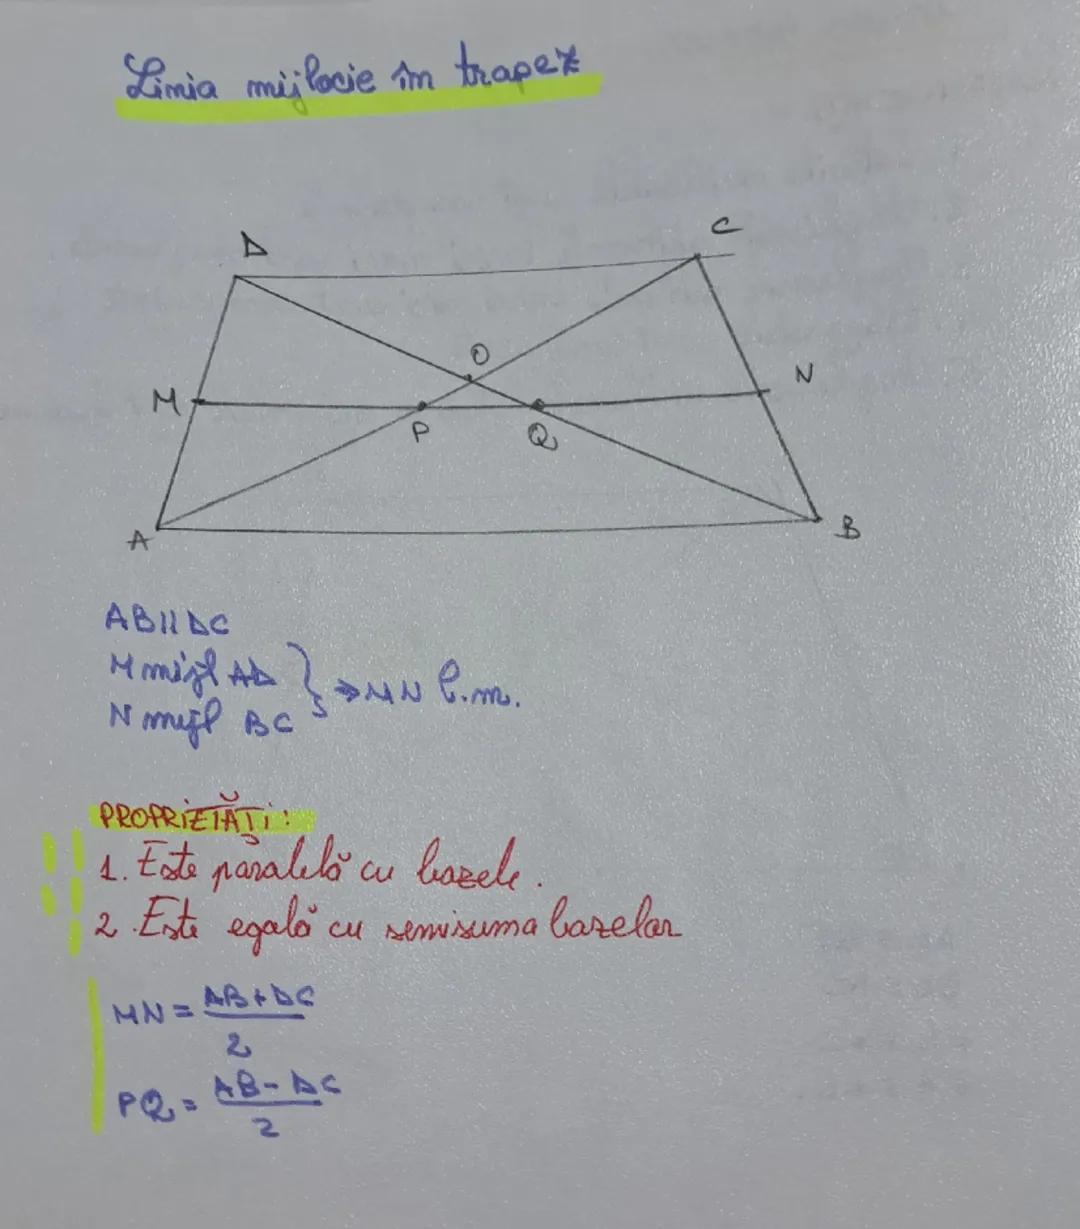 Linia mijlocie în trapez
D
C
O
M
N
P
Q
A
B
AB || DC
M mijl AD
N mijl BC
} ⇒ MN l.m.
PROPRIETĂȚI:
1. Este paralelă cu bazele.
2. Este egală cu semisuma bazelor
MN = AB + DC
2
PQ = AB - DC
2